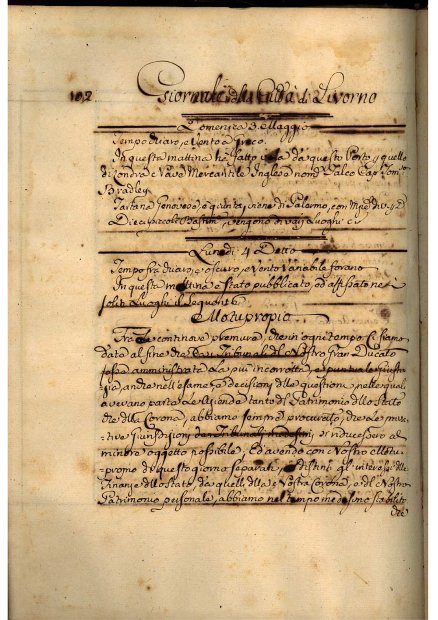 102 Giornale della Città di Livorno
Domenica 3. Maggio
Tempo chiaro, e Vento Greco.
In questa mattina hà fatto vela da questo Porto p quello
di Londra Nave Mercantile Inglese nom. Falco Cap. Tom.
Bradley
Tartana Genovese, e giunta, viene di Palermo, con
Dieci piccoli Bastim. vengono di varj Luoghi
Lunedì 4 Detto
Tempo frà chiaro, e oscuro, e Vento Variabile forano
In questa mattina è stato pubblicato, ed affissato ne
soliti Luoghi il seguente
Motuproprio
Tra le continove premure, che in ogni tempo Ci siamo
data al fine che Dai Tribunali del Nostro Gran Ducato
fosse amministrata la più incorrotta, e puntuale Giusti-
zia, anche nell'esame, e decisioni delle questioni, nelle quali
avevano parte le Aziende tanto del Patrimonio dello Stato
che della Corona, abbiamo sempre procurato, che le
giurisdizioni dei Tribunali medesimi si riducessero al
minore oggetto possibile, Ed avendo con Nostro Motu-
proprio di questo giorno separati, e distinti gl'interessi delle
Finanze dello Stato da quelli della Nostra Corona, e del Nostro
Patrimonio personale, abbiamo nel tempo medesimo stabilito
che